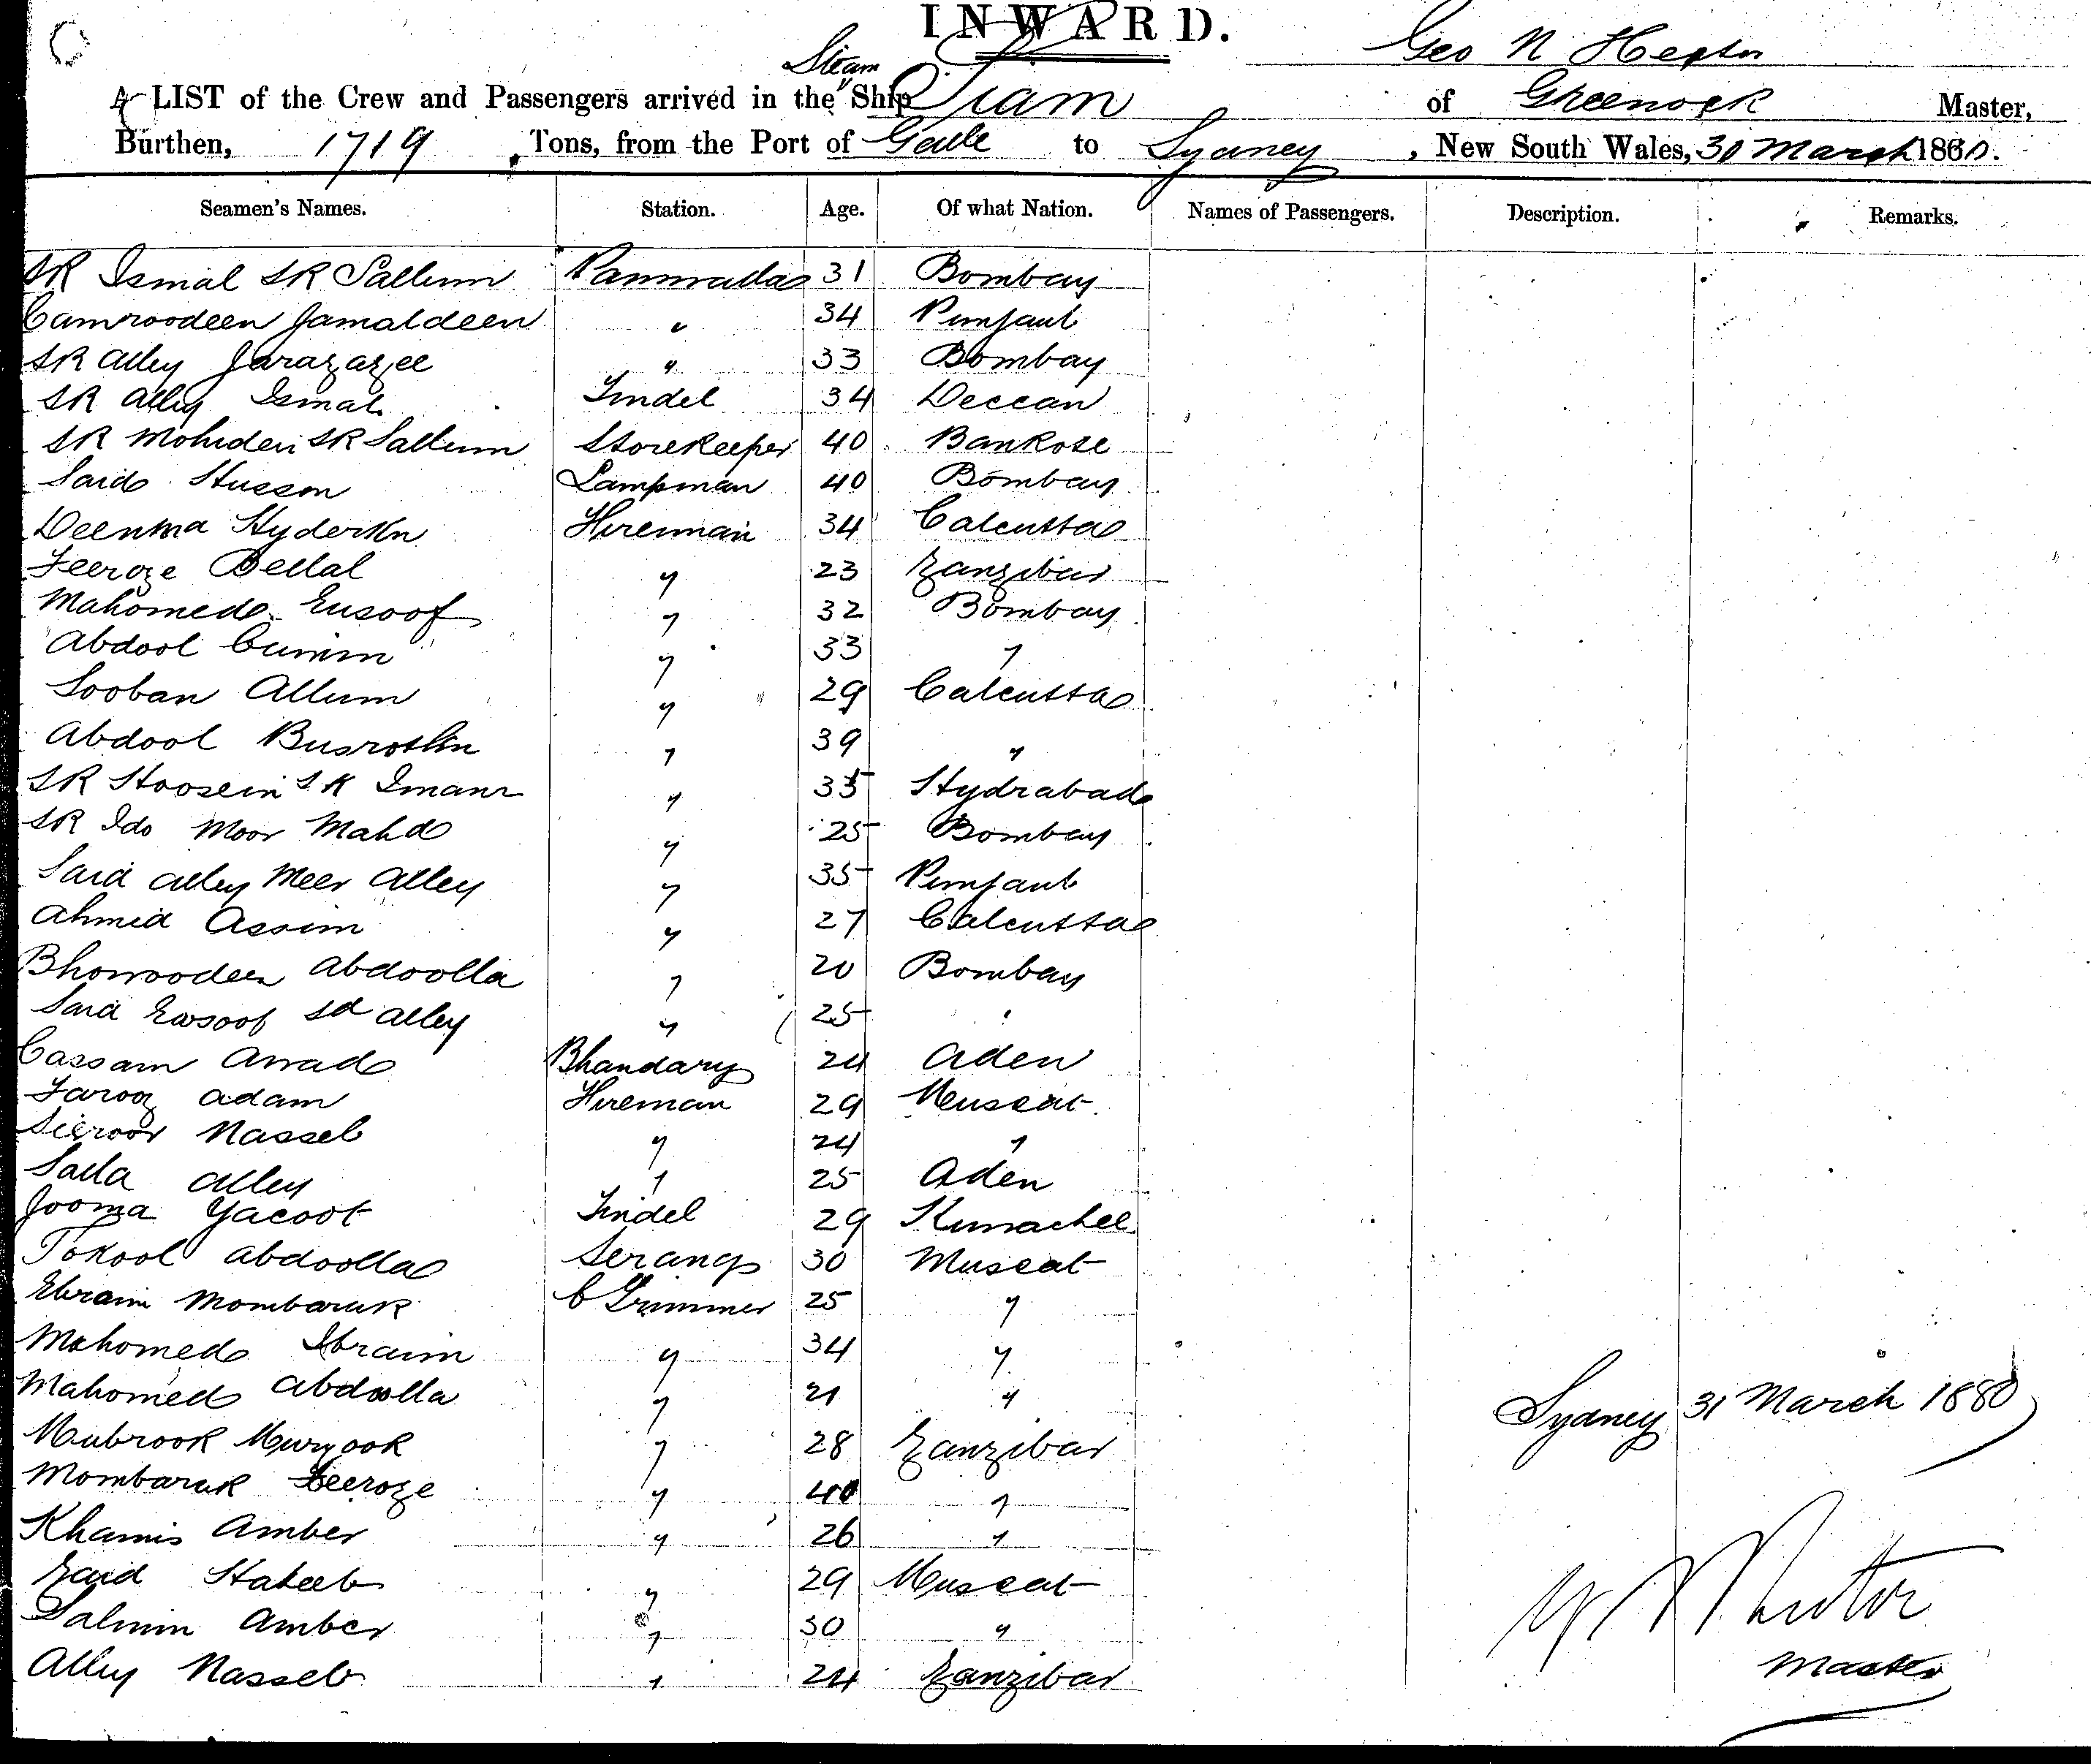 INWARD.
Geo N Hector
A LIST of the Crew and Passengers arrived in the Steam Ship Siam of Greenock Master,
Burthen, 1719 Tons, from the Port of Galle to Sydney, New South Wales, 31 March 1880.
Seamen's Names. Station. Age. Of what Nation. Names of Passengers. Description. Remarks.
SK Ismal SK Sallum 31 Bombay
Camroodeen Jamaldeen " 34 Punjaub
SK Alley Jarazazee " 33 Bombay
SK Alley Ismal Tindel 34 Deccan
SK Mohideen SK Sallum Storekeeper 40 Bankote
Said Husson Lampman 40 Bombay
Deenma Hyderkn Fireman 34 Calcutta
Feeroze Bellal " 23 Zanzibar
Mahomed Eusoof " 32 Bombay
Abdool Curim " 33 "
Sooban Allum " 29 Calcutta
Abdool Busrothn " 39 "
SK Hoosein SK Imam " 35 Hydrabad
SK Ido Noor Mahd " 25 Bombay
Said Alley Meer Alley " 35 Punjaub
Ahmid Assim " 27 Calcutta
Bhowoodeen Abdoolla " 20 Bombay
Said Ewsoof Sd Alley " 25 "
Cassam Awad Bhandary 24 Aden
Farooz Adam Fireman 29 Muscat
Sieroor Nasseb " 24 "
Salla Alley " 25 Aden
Jooma Yacoot Tindel 29 Kurrachee
Tokool Abdoolla Serang 30 Muscat
Ebraim Mombaruk C Trimmer 25 "
Mahomed Ibraim " 34 "
Mahomed Abdoolla " 21 "
Sydney 31 March 1880
Mubrook Murzook " 28 Zanzibar
Mombaruk Feeroze " 40 "
Khamis Amber " 26 "
Zaid Hateeb " 29 Muscat
Salmin Amber " 30 "
Alley Nasseb " 24 Zanzibar
Master